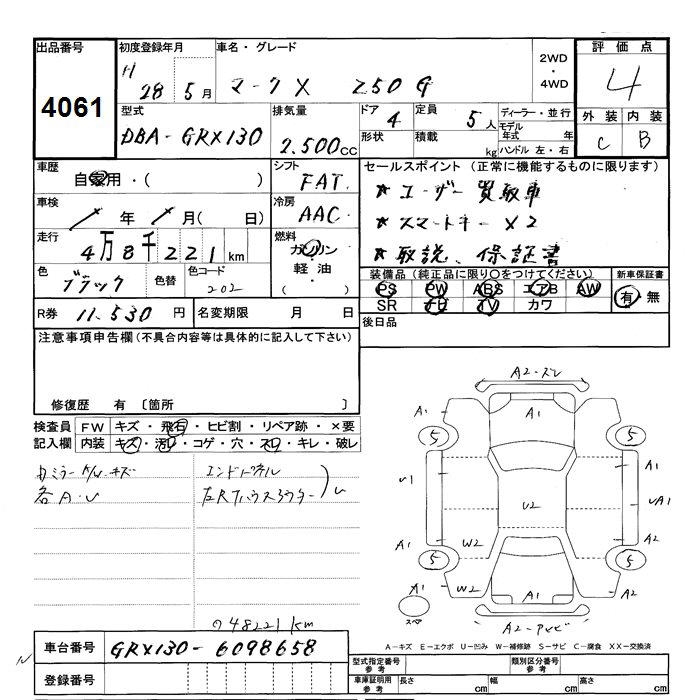 出品番号
4061
初度登録年月
H 28 5 月
車名・グレード
マークX 250G
2WD
・
4WD
評価点
4
型式
DBA-GRX130
排気量
2.500 CC
ドア 4
形状
定員 5 人
積載 kg
ディーラー・並行
モデル年式 年
ハンドル 左・右
外装 内装
C B
車歴
自家用・( )
シフト
FAT
車検
/ 年 / 月( 日)
冷房
AAC
走行
4万8千221 km
燃料
ガソリン
・
軽油
・
( )
色
ブラック
色替
色コード
202
R券 11,530 円
名変期限 月 日
セールスポイント (正常に機能するものに限ります)
★ユーザー買取車
★スマートキー×2
★取説、保証書
装備品 (純正品に限り〇をつけてください)
新車保証書
PS PW ABS エアB AW
SR ナビ TV カワ
有・無
後日品
注意事項申告欄(不具合内容等は具体的に記入して下さい)
修復歴 有 〔箇所 〕
検査員
記入欄
FW キズ・飛石・ヒビ割・リペア跡・×要
内装 キズ・汚れ・コゲ・穴・スレ・キレ・破レ
各A・U
エンドパネル
48221km
A2-スレ
A1
A1
5
5
A1
U1
U2
UA1
A1
W2
A2
5
5
A1
W2
A1
A2
スペア
A-キズ E-エクボ U-凹み W-補修跡 S-サビ C-腐食 XX-交換済
車台番号 GRX130-6098658
登録番号
型式指定番号
参考
類別区分番号
参考
車庫証明用
参考
長さ cm
幅 cm
高さ cm